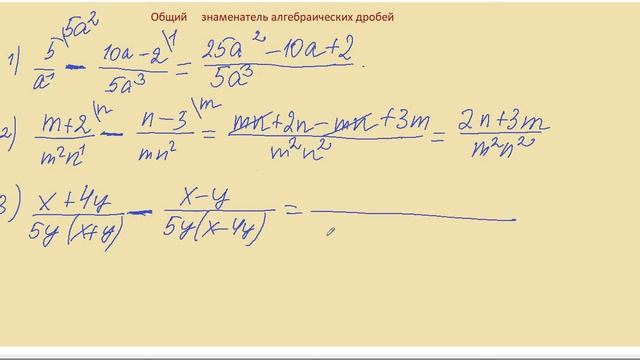 Общий знаменатель алгебраических дробей
1) 5/a¹ \5a² - (10a-2)/5a³ \1 = (25a²-10a+2)/5a³.
2) (m+2)/m²n¹ \n - (n-3)/mn² \m = (mn+2n-mn+3m)/m²n² = (2n+3m)/m²n²
3) (x+4y)/5y(x+y) - (x-y)/5y(x-4y) =